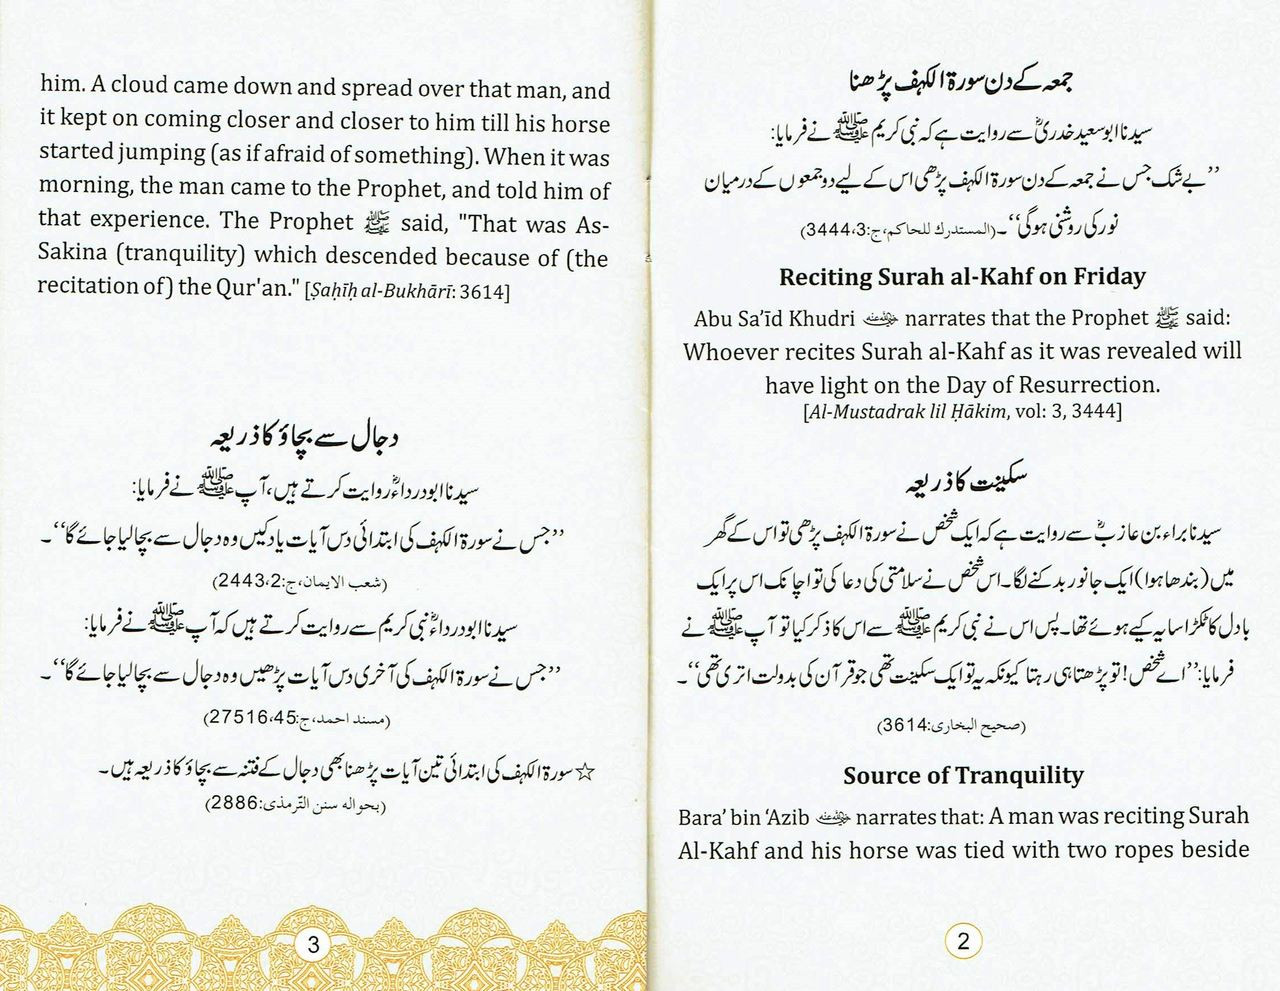 جمعہ کے دن سورۃ الکہف پڑھنا
سیدنا ابو سعید خدریؓ سے روایت ہے کہ نبی کریم ﷺ نے فرمایا:
’’بے شک جس نے جمعہ کے دن سورۃ الکہف پڑھی اس کے لیے دو جمعوں کے درمیان
نور کی روشنی ہوگی‘‘۔ (المستدرك للحاكم، ج:3، 3444)
Reciting Surah al-Kahf on Friday
Abu Sa’īd Khudri رضی اللہ عنہ narrates that the Prophet ﷺ said:
Whoever recites Surah al-Kahf as it was revealed will
have light on the Day of Resurrection.
[Al-Mustadrak lil Ḥākim, vol: 3, 3444]
سکینت کا ذریعہ
سیدنا براء بن عازبؓ سے روایت ہے کہ ایک شخص نے سورۃ الکہف پڑھی تو اس کے گھر
میں (بندھا ہوا) ایک جانور بدکنے لگا۔ اس شخص نے سلامتی کی دعا کی تو اچانک اس پر ایک
بادل کا ٹکڑا سایہ کیے ہوئے تھا۔ پس اس نے نبی کریم ﷺ سے اس کا ذکر کیا تو آپ ﷺ نے
فرمایا: ’’اے شخص! تو پڑھتا ہی رہتا کیونکہ یہ تو ایک سکینت تھی جو قرآن کی بدولت اتری تھی‘‘۔
(صحیح البخاری: 3614)
Source of Tranquility
Bara’ bin ‘Azib رضی اللہ عنہ narrates that: A man was reciting Surah
Al-Kahf and his horse was tied with two ropes beside
2
him. A cloud came down and spread over that man, and
it kept on coming closer and closer to him till his horse
started jumping (as if afraid of something). When it was
morning, the man came to the Prophet, and told him of
that experience. The Prophet ﷺ said, "That was As-
Sakina (tranquility) which descended because of (the
recitation of) the Qur'an." [Ṣaḥīḥ al-Bukhārī: 3614]
دجال سے بچاؤ کا ذریعہ
سیدنا ابو درداءؓ روایت کرتے ہیں، آپ ﷺ نے فرمایا:
’’جس نے سورۃ الکہف کی ابتدائی دس آیات یاد کیں وہ دجال سے بچا لیا جائے گا‘‘۔
(شعب الايمان، ج:2، 2443)
سیدنا ابو درداءؓ نبی کریم سے روایت کرتے ہیں کہ آپ ﷺ نے فرمایا:
’’جس نے سورۃ الکہف کی آخری دس آیات پڑھیں وہ دجال سے بچا لیا جائے گا‘‘۔
(مسند احمد، ج:45، 27516)
☆ سورۃ الکہف کی ابتدائی تین آیات پڑھنا بھی دجال کے فتنہ سے بچاؤ کا ذریعہ ہیں۔
(بحواله سنن التّرمذی: 2886)
3